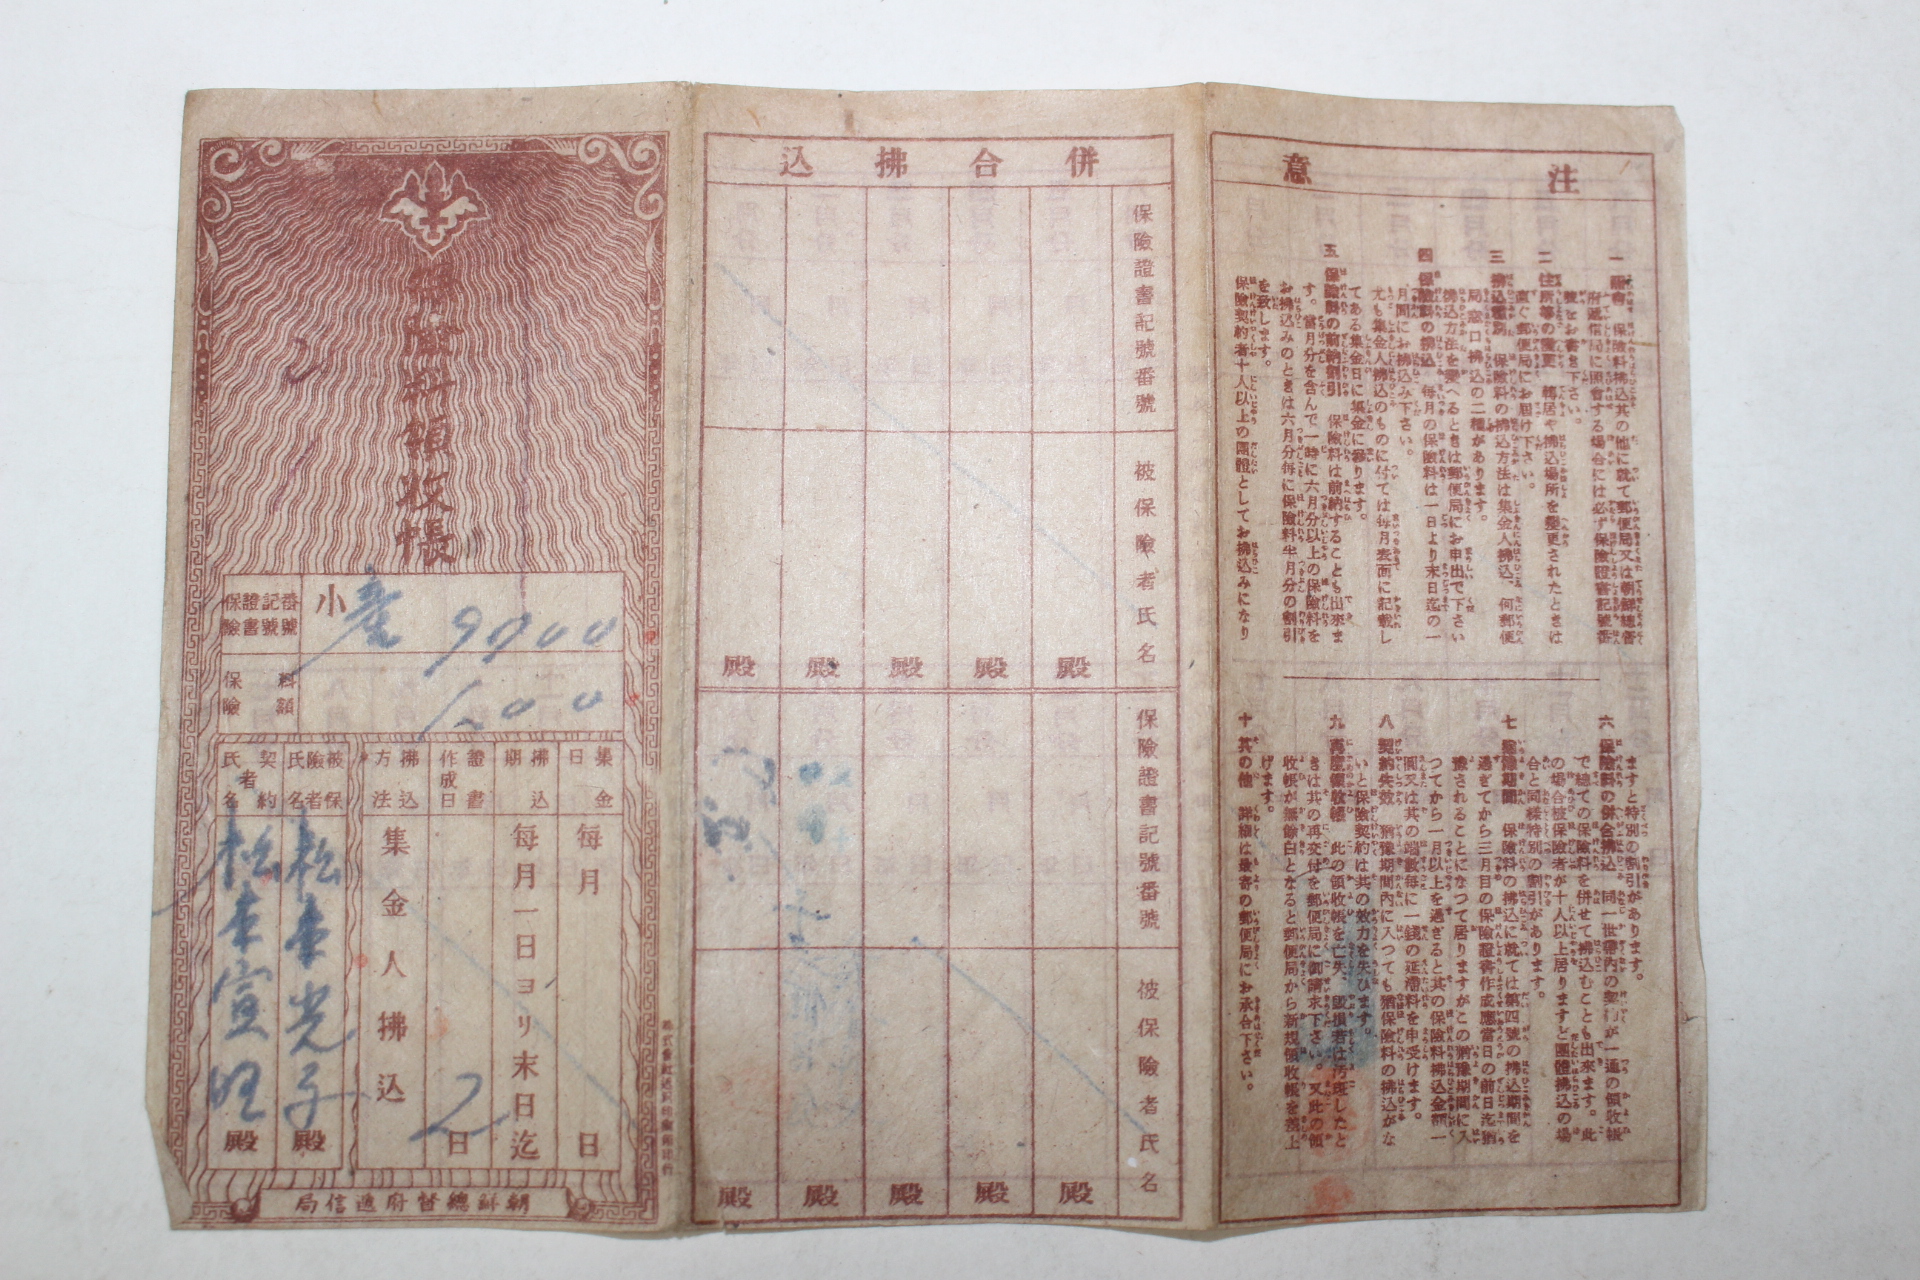 注意
一 照會 保險料拂込其の他に就て郵便局又は朝鮮總督
府遞信局に照會する場合には必ず保險證書記號番
號をお書き下さい。
二 住所等の變更 轉居や拂込場所を變更されたときは
直ぐ郵便局にお届け下さい。
三 拂込種別 保險料の拂込方法は集金人拂込、何郵便
局窓口拂込の二種があります。
拂込方法を變へるときは郵便局にお申出で下さい
四 保險料の拂込 每月の保險料は一日より末日迄の一
月間にお拂込み下さい。
尤も集金人拂込のものに付ては每月表面に記載し
てある集金日に集金に參ります。
五 保險料の前納割引 保險料は前納することも出來ま
す。當月分を含んで一時に六月分以上の保險料を
お拂込みのときは六月分每に保險料半月分の割引
を致します。
保險契約者十人以上の團體としてお拂込みになり
ますと特別の割引があります。
六 保險料の併合拂込 同一世帶內の契約が一通の領收帳
で總ての保險料を併せて拂込むことも出來ます。此
の場合被保險者が十人以上居りますと團體拂込の場
合と同樣特別の割引があります。
七 猶豫期間 保險料の拂込に就ては第四號の拂込期間を
過ぎてから三月目の保險證書作成應當日の前日迄猶
豫されることになつて居りますがこの猶豫期間に入
つてから一月以上を過ぎると其の保險料拂込金額一
圓又は其の端數每に一錢の延滯料を申受けます。
八 契約失效 猶豫期間內に入つても猶保險料の拂込がな
いと保險契約は其の效力を失ひます。
九 再度領收帳 此の領收帳を亡失、毀損若は汚斑したと
きは其の再交付を郵便局に御請求下さい。又此の領
收帳が無餘白となると郵便局から新規領收帳を差上
げます。
十 其の他 詳細は最寄の郵便局にお承合下さい。
併合拂込
保險證書記號番號
被保險者氏名
殿 殿 殿 殿 殿
保險證書記號番號
被保險者氏名
殿 殿 殿 殿 殿
保險料領收帳
保險證書記號番號
小 9900
保險料額
100
集金日
每月 日
拂込期
每月一日ヨリ末日迄
證書作成日
2日
拂込方法
集金人拂込
被保險者氏名
松本光子殿
契約者氏名
松本宣旺殿
朝鮮總督府遞信局